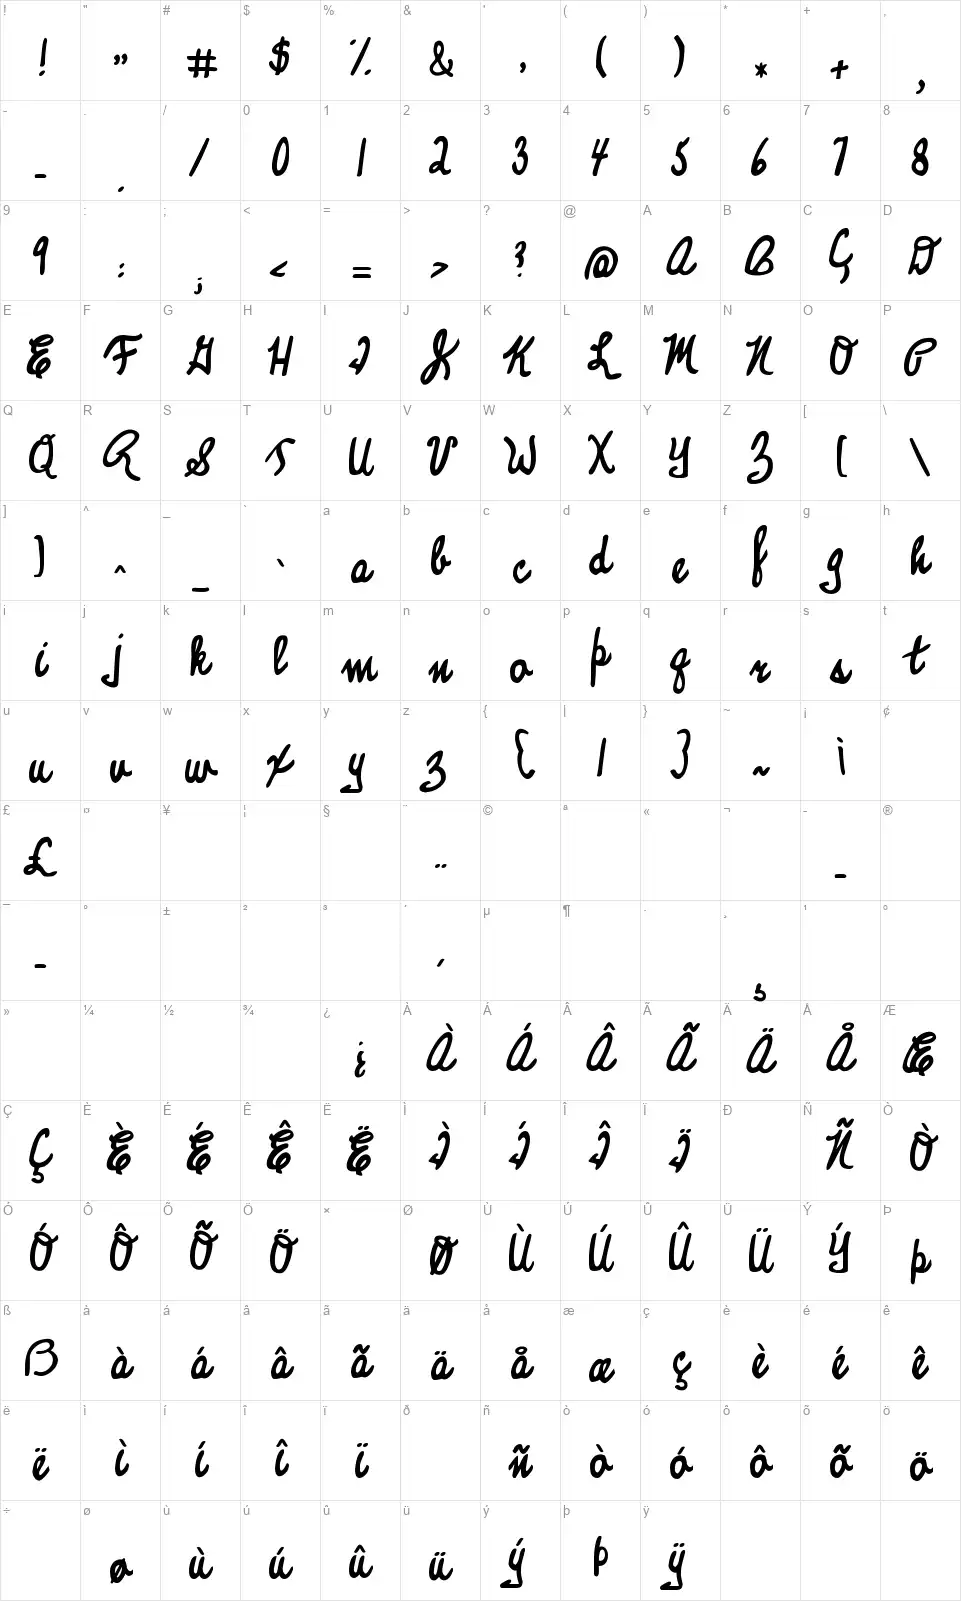 ! " # $ % & ' ( ) * + ,
! " # $ % & ' ( ) * + ,
- . / 0 1 2 3 4 5 6 7 8
- . / 0 1 2 3 4 5 6 7 8
9 : ; < = > ? @ A B C D
9 : ; < = > ? @ A B Ç D
E F G H I J K L M N O P
E F G H I J K L M N O P
Q R S T U V W X Y Z [ \
Q R S T U V W X Y Z [ \
] ^ _ ` a b c d e f g h
] ^ _ ` a b c d e f g h
i j k l m n o p q r s t
i j k l m n o p q r s t
u v w x y z { | } ~ ¡ ¢
u v w x y z { | } ~ ¡
£ ¤ ¥ ¦ § ¨ © ª « ¬ - ®
£ ¨ -
¯ ° ± ² ³ ´ µ ¶ · ¸ ¹ º
¯ ´ ¸
» ¼ ½ ¾ ¿ À Á Â Ã Ä Å Æ
¿ À Á Â Ã Ä Å Æ
Ç È É Ê Ë Ì Í Î Ï Ð Ñ Ò
Ç È É Ê Ë Ì Í Î Ï Ñ Ò
Ó Ô Õ Ö × Ø Ù Ú Û Ü Ý Þ
Ó Ô Õ Ö Ø Ù Ú Û Ü Ý Þ
ß à á â ã ä å æ ç è é ê
ß à á â ã ä å æ ç è é ê
ë ì í î ï ð ñ ò ó ô õ ö
ë ì í î ï ñ ò ó ô õ ö
÷ ø ù ú û ü ý þ ÿ
ø ù ú û ü ý þ ÿ